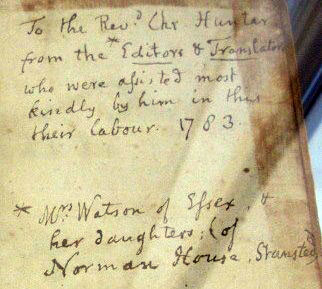 To the Rev.d Chr Hunter
from the * Editors & Translators
who were assisted most
kindly by him in this
their labour. 1783.
* Mrs Watson of Essex, &
her daughters; (of
Norman House, Stansted